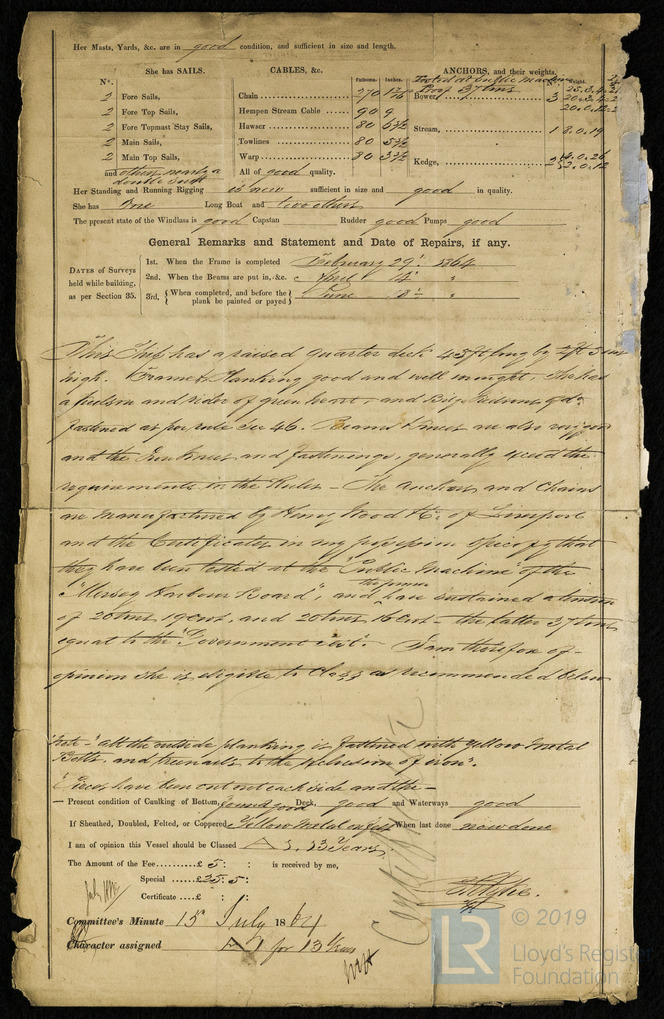 Her Masts, Yards, &c. are in good condition, and sufficient in size and length.
She has SAILS.
CABLES, &c.
ANCHORS, and their weights.
Fathoms. Inches.
Tested at public machine
N°.
2 Fore Sails,
2 Fore Top Sails,
2 Fore Topmast Stay Sails,
2 Main Sails,
2 Main Top Sails,
and others nearly a double suit
Chain 270
Hempen Stream Cable 90 9
Hawser 80
Towlines 80
Warp 80
All of good quality.
Proof 37 tons
Bower, 3
Stream, 1 8.0.19
Kedge, 2
Her Standing and Running Rigging is new sufficient in size and good in quality.
She has One Long Boat and two others
The present state of the Windlass is good Capstan Rudder good Pumps good
General Remarks and Statement and Date of Repairs, if any.
DATES of Surveys held while building, as per Section 35.
1st. When the Frame is completed February 29th 1864
2nd. When the Beams are put in, &c. April 14 "
3rd. { When completed, and before the plank be painted or payed } June "
This Ship has a raised quarter deck 43 ft long by 2 ft 3 in
high. Frame & Planking good and well wrought, She has
a keelson and rider of green heart, and
fastened as per rule Sec 46. are also
and the Iron Knees and fastenings, generally exceed the
requirements in the Rules – The Anchors and Chains
are manufactured by Henry Wood & Co. of Liverpool
and the Certificates in my possession specify that
they have been tested at the "Public Machine" of the
"Mersey Harbour Board", and the former have sustained a tension
of 20 tons 19 cwt, and 20 tons 16 cwt – the latter 37 tons
equal to the "Government test". I am therefore of
opinion she is eligible to Class as recommended below
Note – all the outside planking is fastened with Yellow Metal
Bolts, and treenails to the exclusion of iron".
Pieces have been cut out each side and the –
– Present condition of Caulking of Bottom, found good Deck, good and Waterways good
If Sheathed, Doubled, Felted, or Coppered Yellow Metal on felt When last done now done
I am of opinion this Vessel should be Classed A 1. 13 Years
The Amount of the Fee £ 5 : : is received by me,
Special £ 25. 5 :
Certificate £ : :
Committee's Minute 15th July 1864
Character assigned A 1 for 13 Years
LR
© 2019
Lloyd's Register
Foundation